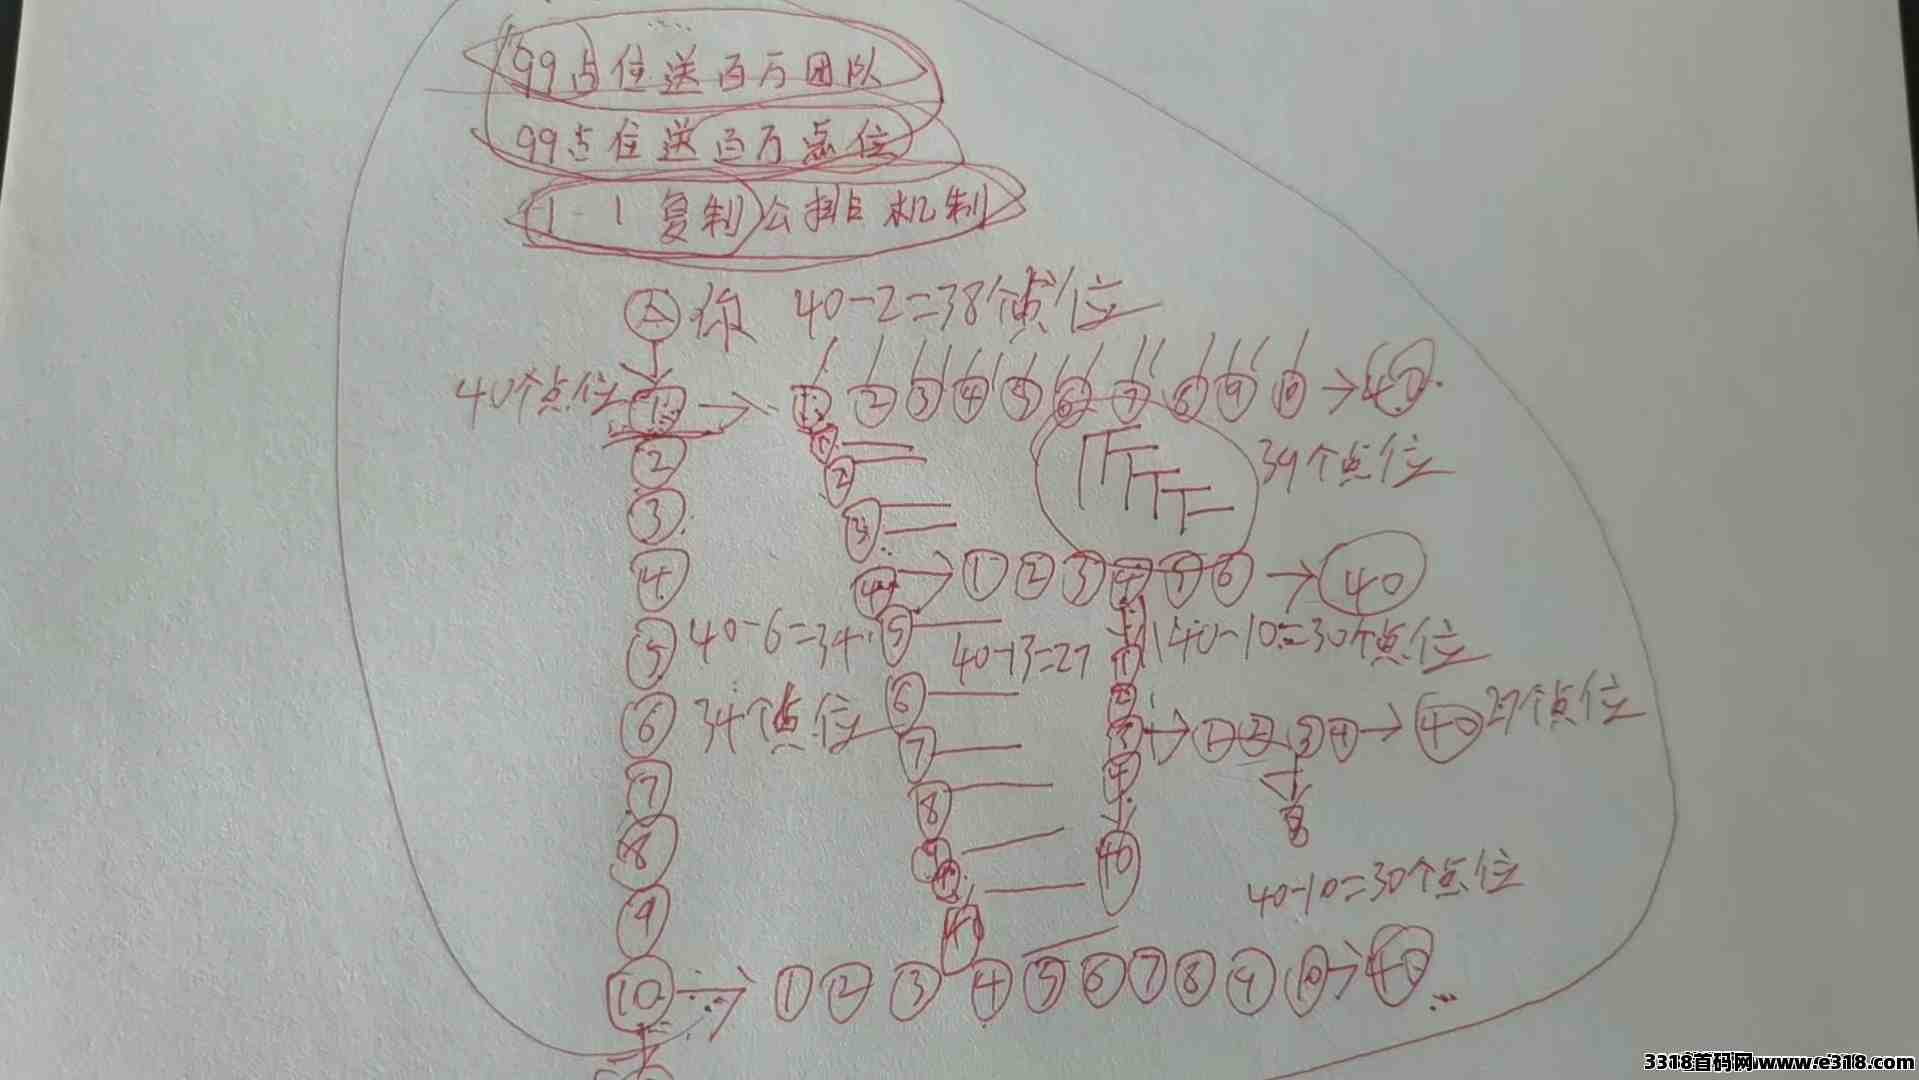 99占位送百万团队
99点位送百万点位
1-1复制公排机制
你 40-2=38个点位
40个点位 ① → ① ② ③ ④ ⑤ ⑥ ⑦ ⑧ ⑨ ⑩ → 40
① 39个点位
②
②
③
③
④
④ → ① ② ③ ④ ⑤ ⑥ → 40
⑤ 40-6=34 ⑤ 40-13=27 ① 40-10=30个点位
⑥ 34个点位 ⑥ ②
⑦ ③ → ① ② ③ ④ → 40 27个点位
⑦ ⑧ ④
⑧ ⑨ 40
40-10=30个点位
⑨ 40
⑩ → ① ② ③ ④ ⑤ ⑥ ⑦ ⑧ ⑨ ⑩ → 40
3318首码网www.e318.com